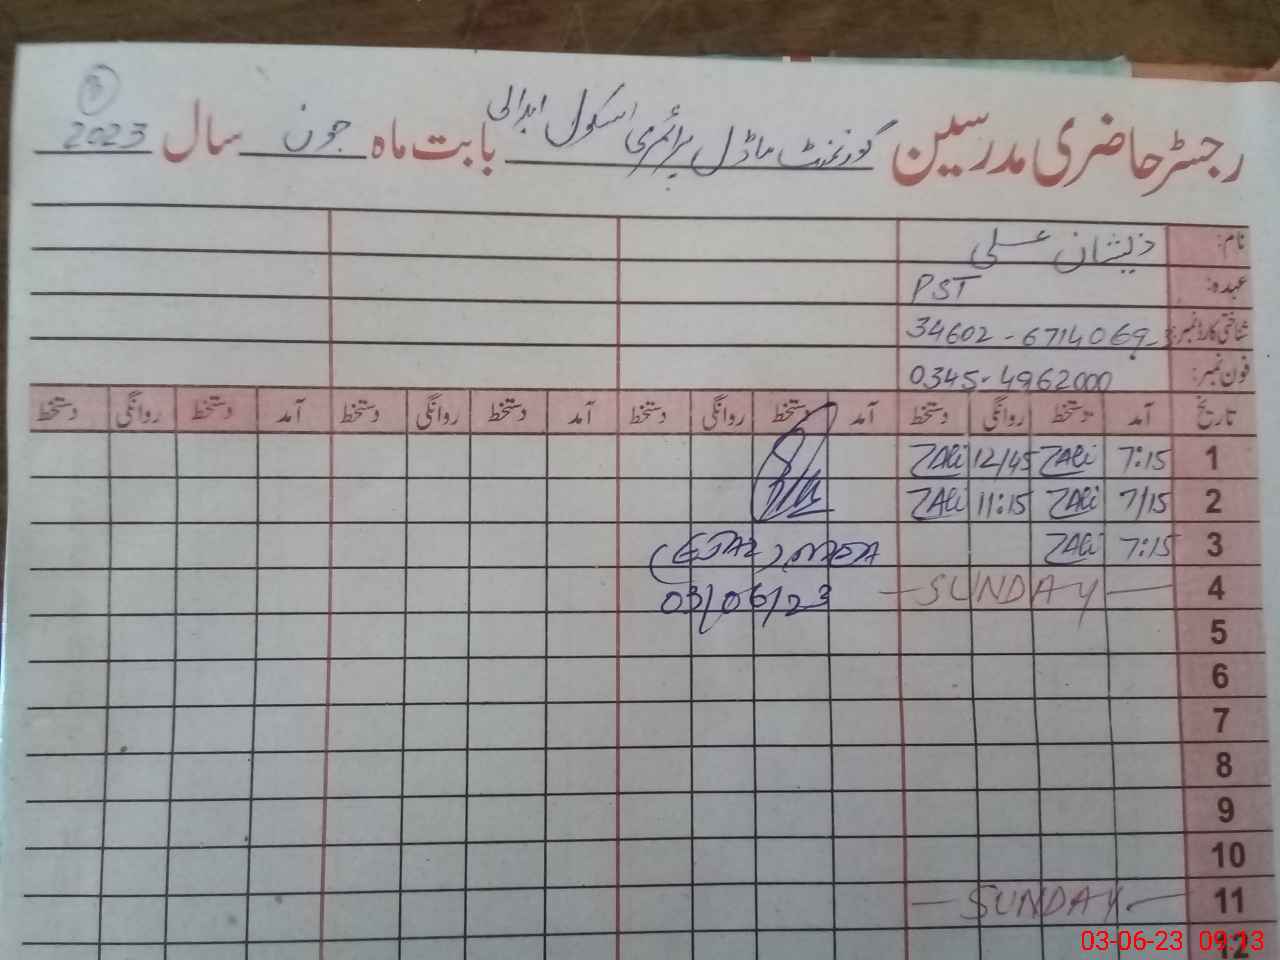 3
رجسٹر حاضری مدرسین گورنمنٹ ماڈل پرائمری اسکول ابدالی بابت ماہ جون سال 2023
نام: ذیشان علی
عہدہ: PST
شناختی کارڈ نمبر: 34602-6714069-3
فون نمبر: 0345-4962000
تاریخ آمد دستخط روانگی دستخط آمد دستخط روانگی دستخط آمد دستخط روانگی دستخط آمد دستخط روانگی دستخط
1 7:15 ZAli 12/45 ZAli
2 7/15 ZAli 11:15 ZAli
3 7:15 ZAli (EJAZ) MEA
4 — SUNDAY — 03/06/23
5
6
7
8
9
10
11 — SUNDAY —
12
03-06-23 09:13